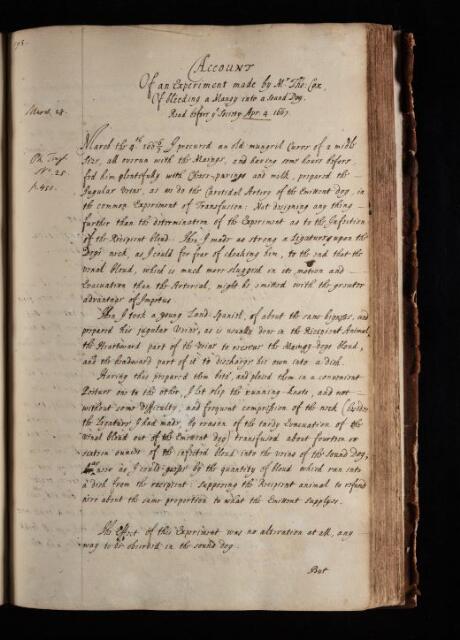 Account
Of an Experiment made by Mr Tho: Cox,
Of bleeding a Mangy into a Sound Dog.
Read before ye Society Apr. 4. 1667.
March 28.
Ph. Trans.
No. 25.
p. 451.
March the 4.th 166 I procured an old mungrel Curr of a midle
Size, all overun with the Mainge, and having some hours before
fed him plentifully with Chees-parings and milk, prepared the
Jugular Veine, as we do the Carotidal Artery of the Emittent dog, in
the common Experiment of Transfusion: Not designing any thing
further than the determination of the Experiment as to the Infection
of the Recipient bloud. Then I made as strong a Ligature upon the
Dogs neck, as I could for fear of choaking him, to the end that the
venal bloud, which is much more sluggish in its motion and
Evacuation than the Arterial, might be emitted with the greater
advantage of Impetus.
Then I took a young Land-Spaniel, of about the same bigness, and
prepared his jugular Veine, as is usually done in the Recipient Animal,
the Heartward part of the Veine to receive the Maingy-dogs bloud,
and the headward part of it to discharge his own into a dish.
Having thus prepared them both, and placed them in a convenient
Posture one to the other, I let slip the running-knots, and not
without some difficulty, and frequent compression of the neck (besides
the Ligature, I had made, by reason of the tardy Evacuation of the
venal bloud out of the Emittent dog) transfused about fourteen or
sixteen ounces of the infected bloud into the veins of the Sound Dog,
as near as I could by the quantity of bloud which ran into
a dish from the recipient: supposing the Recipient animal to refund
neer about the same proportion to what the Emittent supplyes.
The Effect of this Experiment was no alteration at all, any
way to be observed in the sound dog.
But